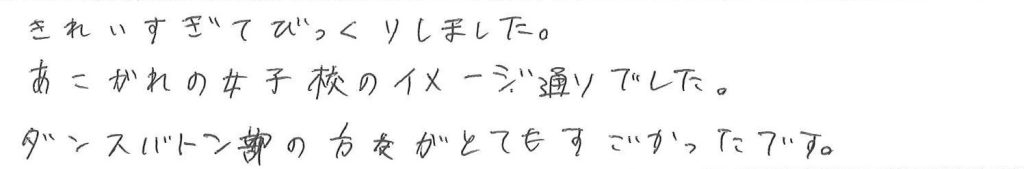 きれいすぎてびっくりしました。
あこがれの女子校のイメージ通りでした。
ダンスバトン部の方々がとてもすごかったです。